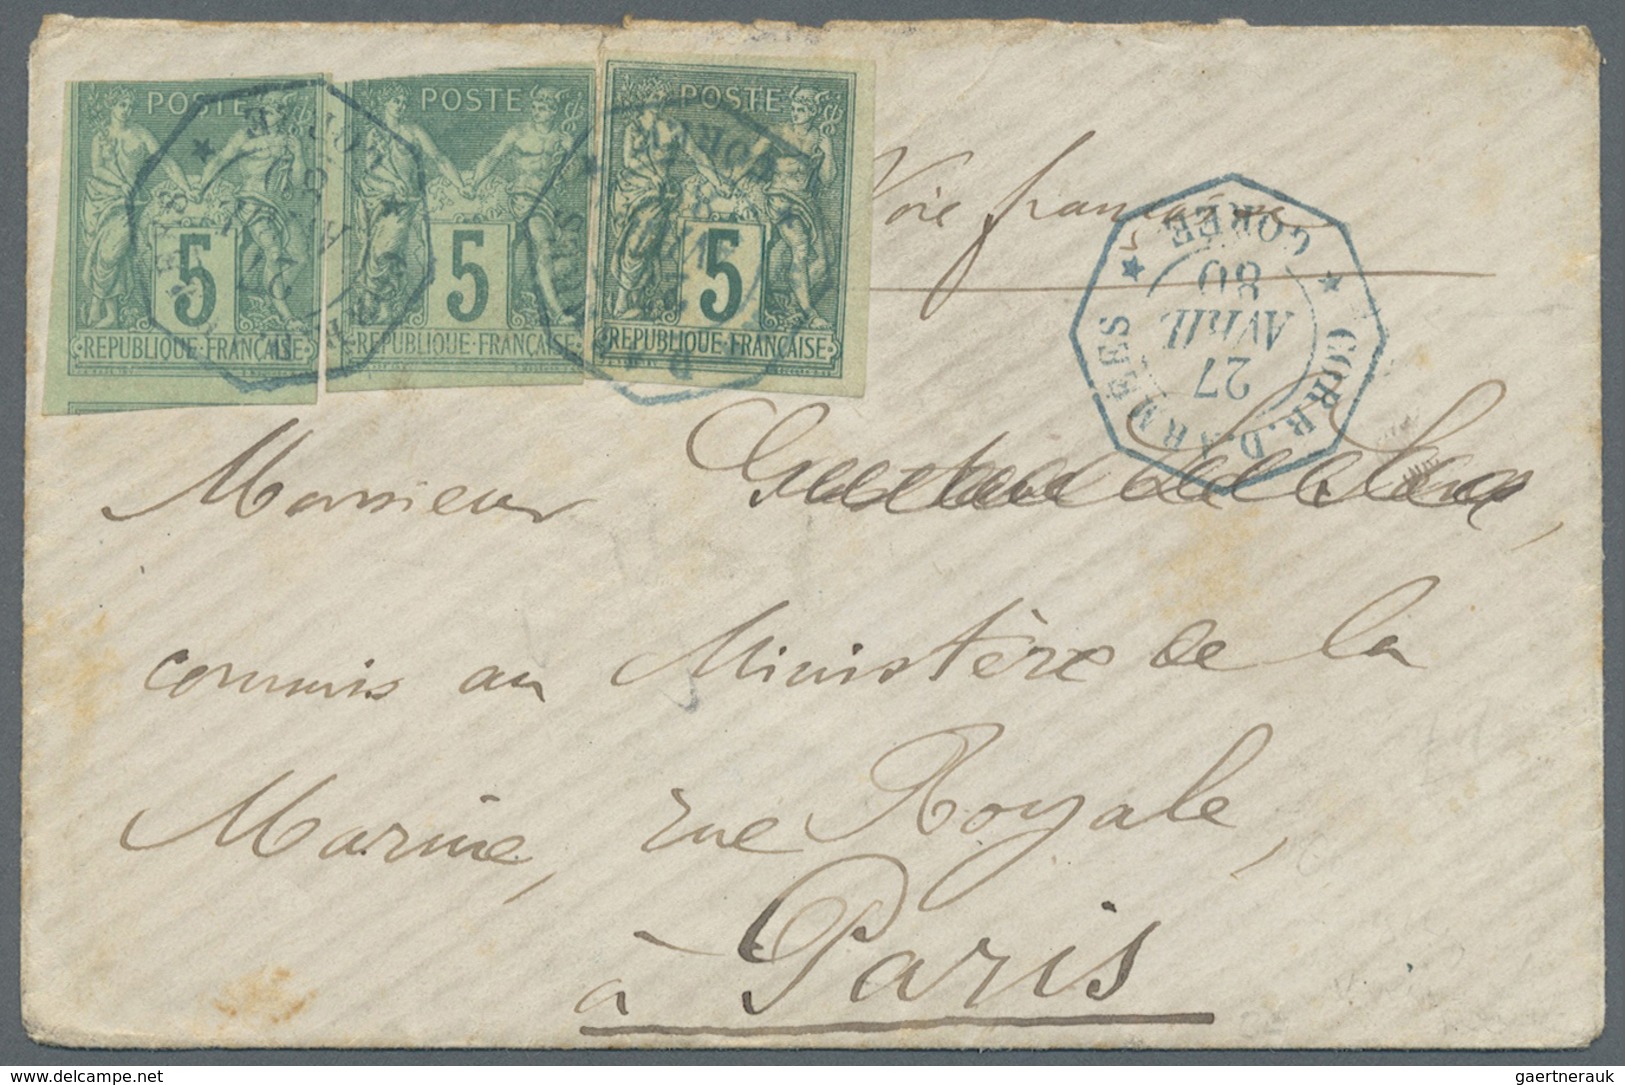 POSTE POSTE POSTE
5 5 5
REPUBLIQUE FRANÇAISE REPUBLIQUE FRANÇAISE REPUBLIQUE FRANÇAISE
Voie française
CORR. D. ARMÉES
GORÉE
27
AVRIL
80
Monsieur
commis au Ministère de la
Marine, rue Royale,
à Paris
© www.delcampe.net
gaertnerauk